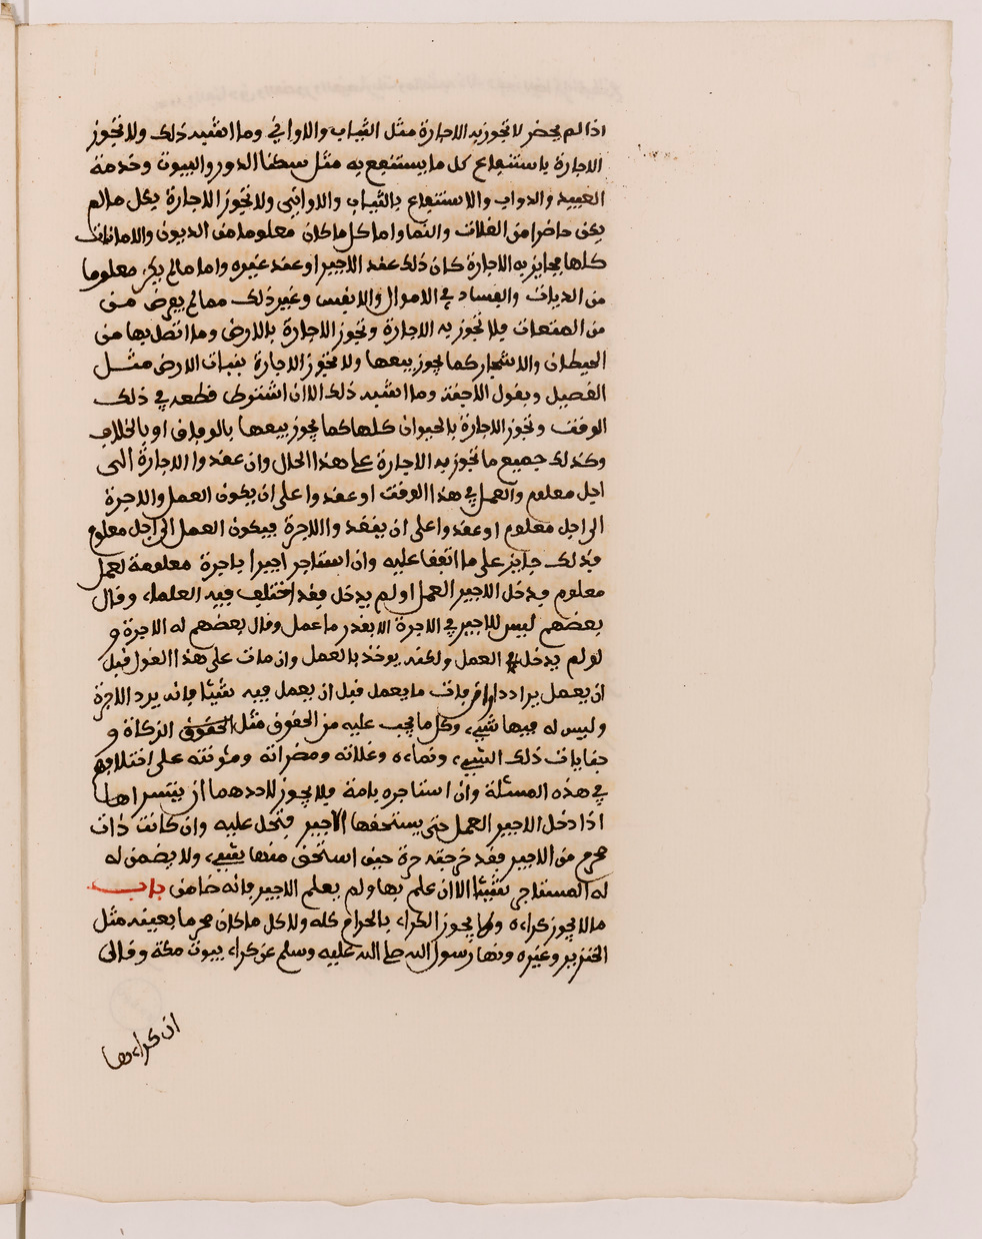 اذا لم يحضر لا تجوز به الاجارة مثل الثياب والاواني وما اشبه ذلك ولا تجوز
الاجارة باستنفاع كل ما يستنفع به مثل سكنا الدور والبيوت وخدمة
العبيد والدواب والاستنفاع بالثياب والاواني ولا تجوز الاجارة بكل ما لم
يكن حاضرا من الغلات والنما واما كل ما كان معلوما من الديون والامانات
كلها فجايز به الاجارة كان ذلك عند الاجير او عند غيره واما ما لم يكن معلوما
من الديات والفساد في الاموال والانفس وغير ذلك مما لم يفرض من
من المتعات فلا تجوز به الاجارة وتجوز الاجارة بالارض وما اتصل بها من
الحيطان والاشجار كما يجوز بيعها ولا تجوز الاجارة بنبات الارض مثل
القصيل وبقول الاجنة وما اشبه ذلك الا ان اشترط قطعه في ذلك
الوقت وتجوز الاجارة بالحيوان كلها كما يجوز بيعها بالوفاق او بالخلاف
وكذلك جميع ما تجوز به الاجارة على هذا الحال وان عقدوا الاجارة الى
اجل معلوم والعمل في هذا الوقت او عقدوا على ان يكون العمل والاجرة
الى اجل معلوم او عقدوا على ان ينقدوا الاجرة فيكون العمل الى اجل معلوم
فذلك جايز على ما اتفقا عليه وان استاجر اجيرا باجرة معلومة لعمل
معلوم فدخل الاجير العمل او لم يدخل فقد اختلف فيه العلماء وقال
بعضهم ليس للاجير في الاجرة الا بقدر ما عمل وقال بعضهم له الاجرة و
لو لم يدخل العمل ولكنه يوخذ بالعمل وان مات على هذا القول قبل
ان يعمل يرادد او فات ما يعمل قبل ان يعمل فيه شيئا فانه يرد الاجرة
وليس له فيها شيء وكل ما يجب عليه من الحقوق مثل الحقوق الزكاة و
جنايات ذلك الشيء ونماءه وغلاته ومضراته ومئونته على اختلافهم
في هذه المسئلة وان استاجره بامة فلا يجوز لاحدهما ان يتسراها
اذا دخل الاجير العمل حتى يستحقها الاجير فتحل عليه وان كانت ذات
محرم من الاجير فقد خرجت حرة حين استحق منها شيء ولا يضمن له
له المستاجر شيئا الا ان علم بها ولم يعلم الاجير فانه ضامن باب
ما لا يجوز كراءه ولا يجوز الكراء بالحرام كله ولا كل ما كان محرما بعينه مثل
الخنزير وغيره ونها رسول الله صلى الله عليه وسلم عن كراء بيوت مكة وقال
ان كراءها